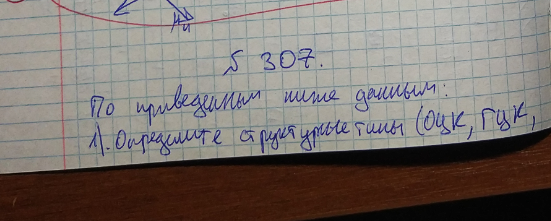 № 307.
По приведенным ниже данным:
1). Определите структурные типы (ОЦК, ГЦК,